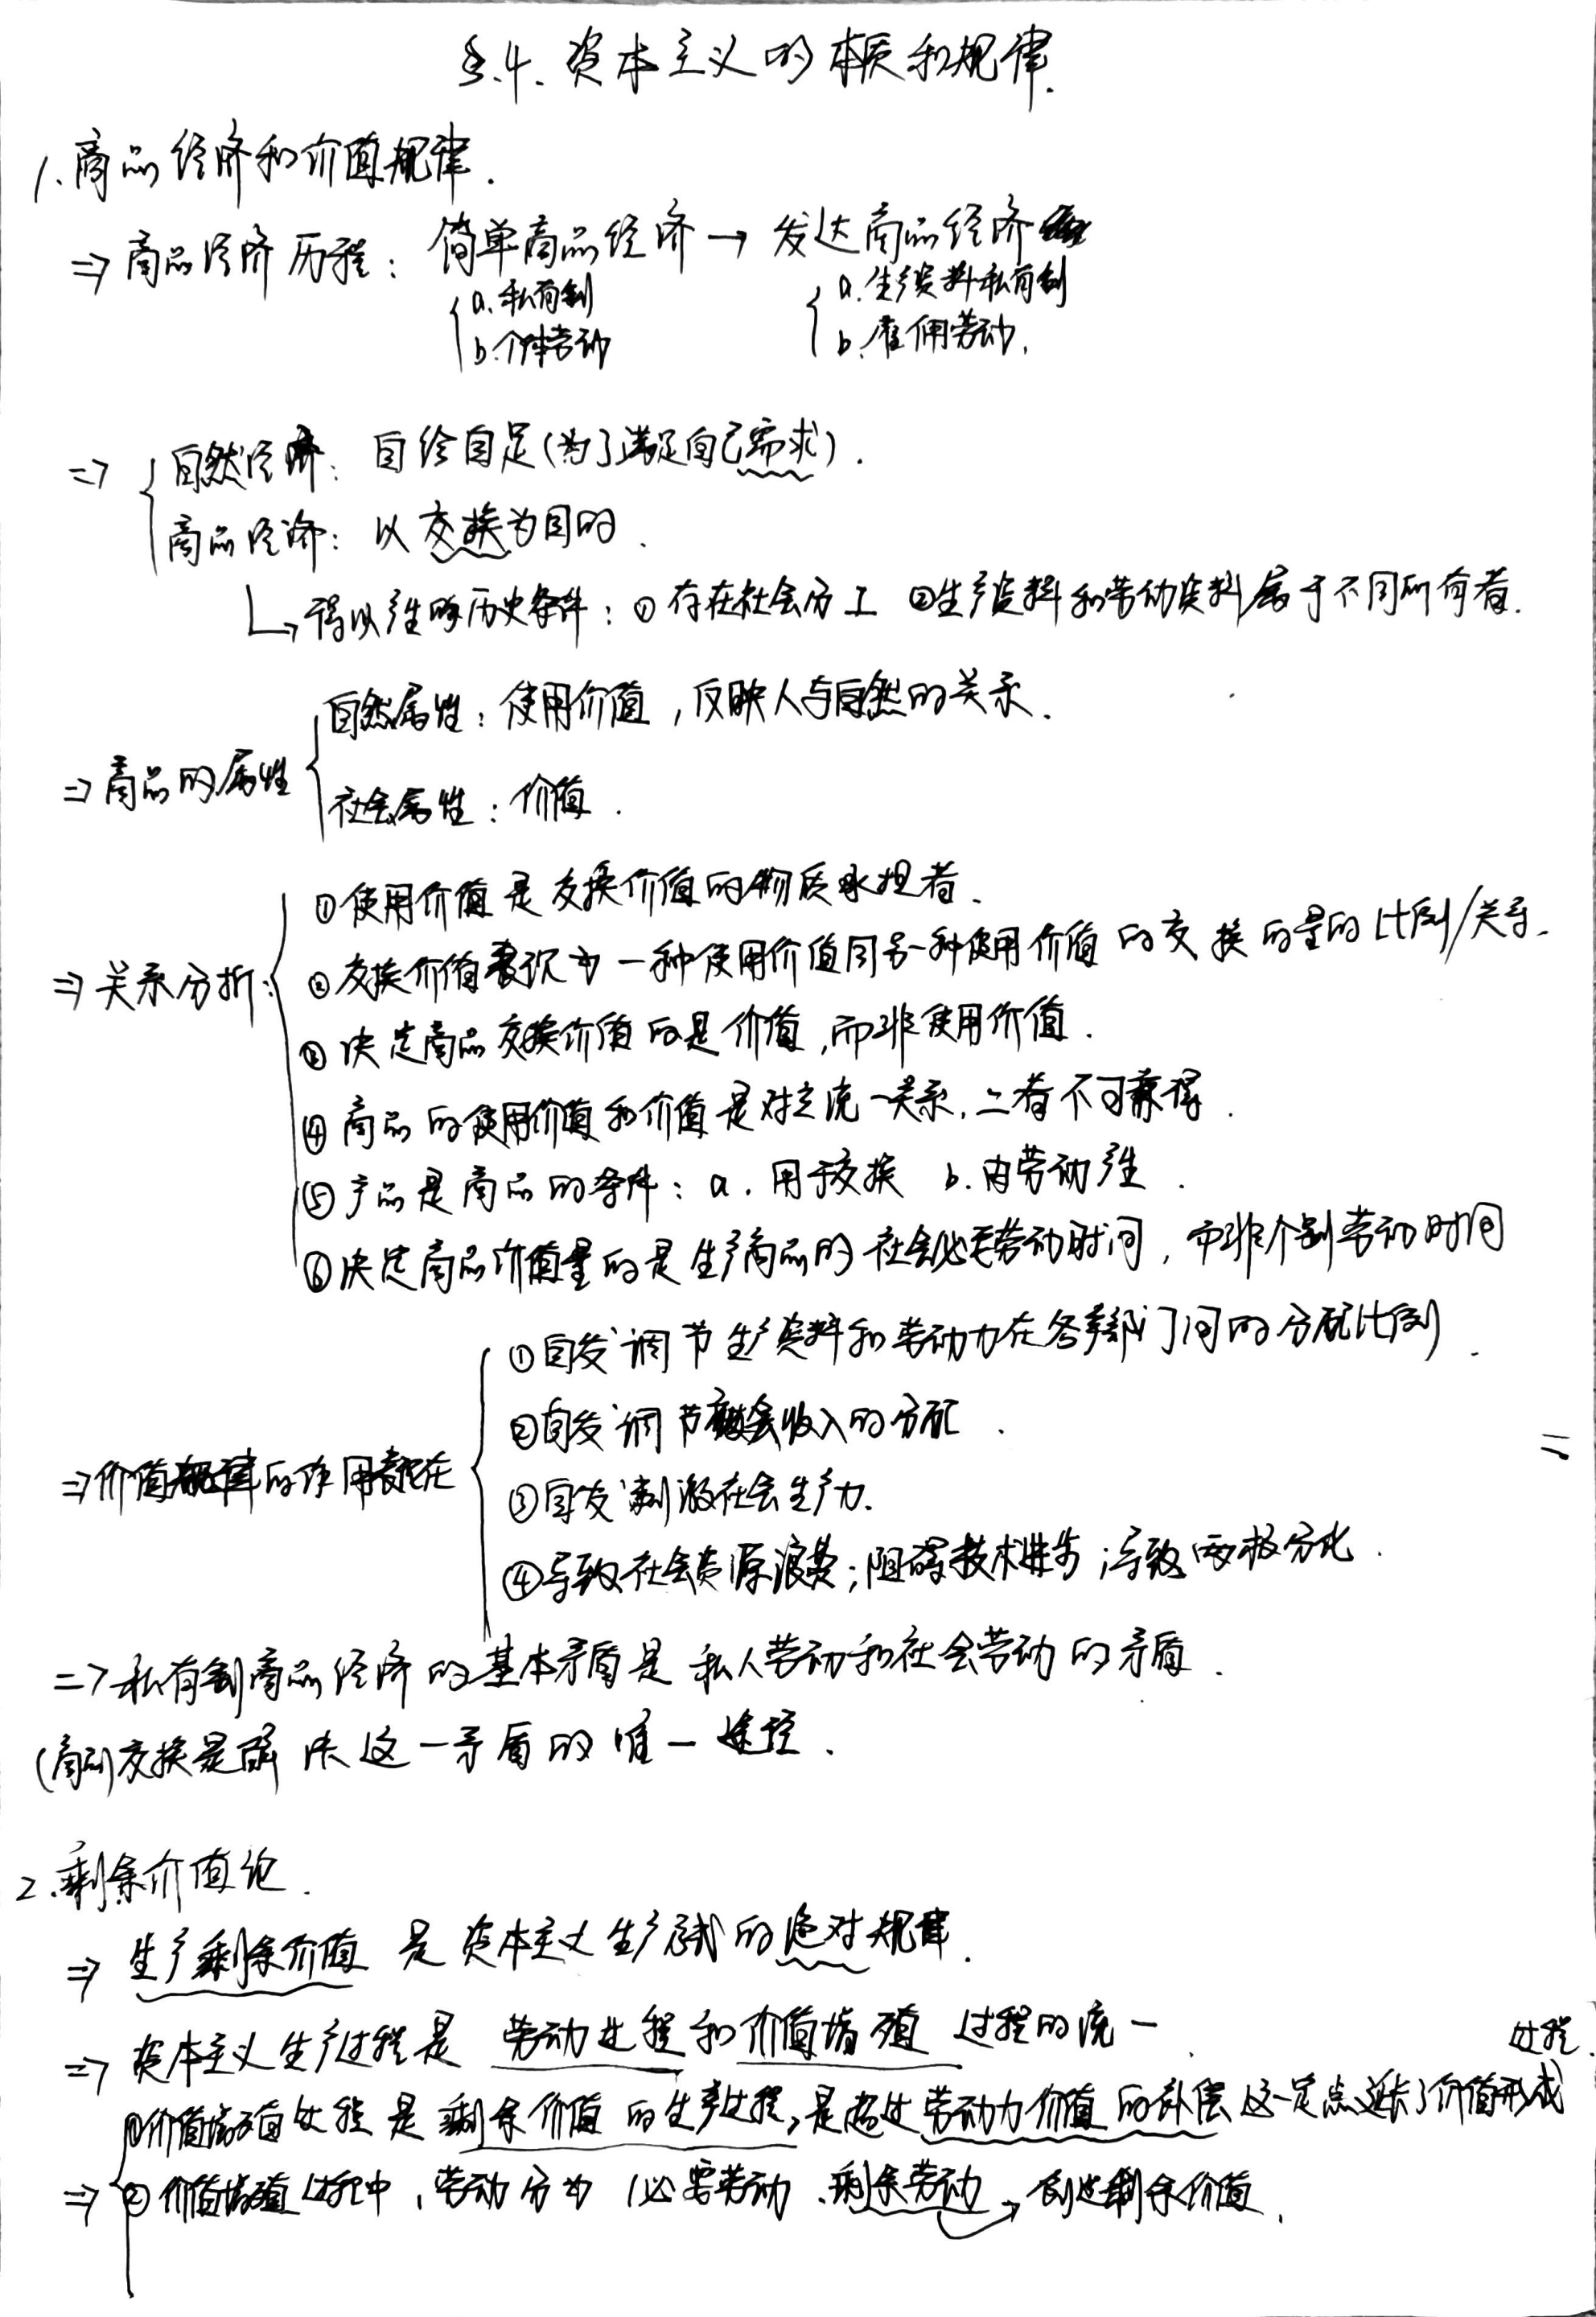 §.4. 资本主义的本质和规律.
1. 商品经济和价值规律.
⇒ 商品经济历程: 简单商品经济 → 发达商品经济
a. 私有制
b. 个体劳动
a. 生产资料私有制
b. 雇佣劳动.
⇒ 自然经济: 自给自足(为了满足自己需求).
商品经济: 以交换为目的.
↳ 得以产生的历史条件: ① 存在社会分工 ②生产资料和劳动资料属于不同所有者.
⇒ 商品的属性
自然属性: 使用价值, 反映人与自然的关系.
社会属性: 价值.
⇒ 关系分析:
①使用价值是交换价值的物质承担者.
②交换价值表现为一种使用价值同另一种使用价值的交换的量的比例/关系.
③决定商品交换价值的是价值,而非使用价值.
④商品的使用价值和价值是对立统一关系,二者不可兼得.
⑤产品是商品的条件: a. 用于交换 b. 由劳动产生.
⑥决定商品价值量的是生产商品的社会必要劳动时间, 而非个别劳动时间
⇒价值规律的作用表现在
①自发调节生产资料和劳动力在各部门间的分配比例.
②自发调节社会收入的分配.
③自发刺激社会生产力.
④导致社会资源浪费;阻碍技术进步;导致两极分化.
=> 私有制商品经济的基本矛盾是私人劳动和社会劳动的矛盾.
(商品)交换是解决这一矛盾的唯一途径.
2. 剩余价值论.
⇒ 生产剩余价值是资本主义生产方式的绝对规律.
⇒ 资本主义生产过程是劳动过程和价值增殖过程的统一.
①价值增殖过程是剩余价值的生产过程,是超过劳动力价值的补偿这一定点延长了价值形成过程.
⇒ ②价值增殖过程中,劳动分为 必要劳动、剩余劳动 → 创造剩余价值.